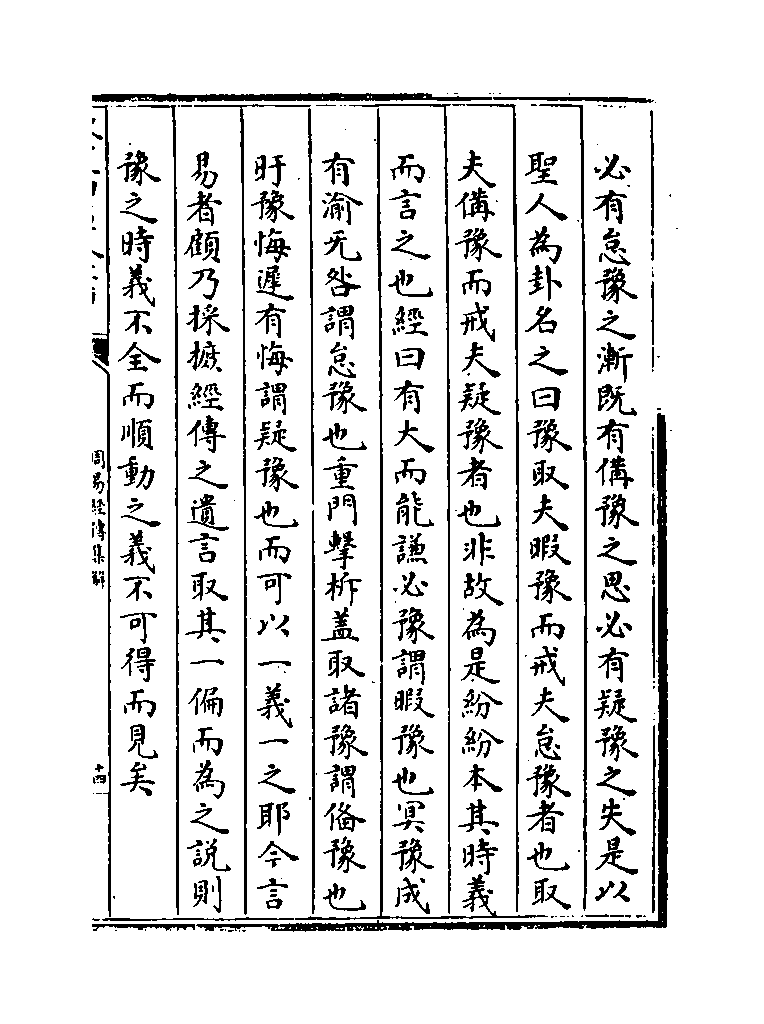 必有怠豫之漸既有備豫之思必有疑豫之失是以
聖人為卦名之曰豫取夫暇豫而戒夫怠豫者也取
夫備豫而戒夫疑豫者也非故為是紛紛本其時義
而言之也經曰有大而能謙必豫謂暇豫也冥豫成
有渝无咎謂怠豫也重門擊柝蓋取諸豫謂備豫也
盱豫悔遲有悔謂疑豫也而可以一義一之耶今言
易者顧乃採摭經傳之遺言取其一偏而為之説則
豫之時義不全而順動之義不可得而見矣
周易經傳集解
十四